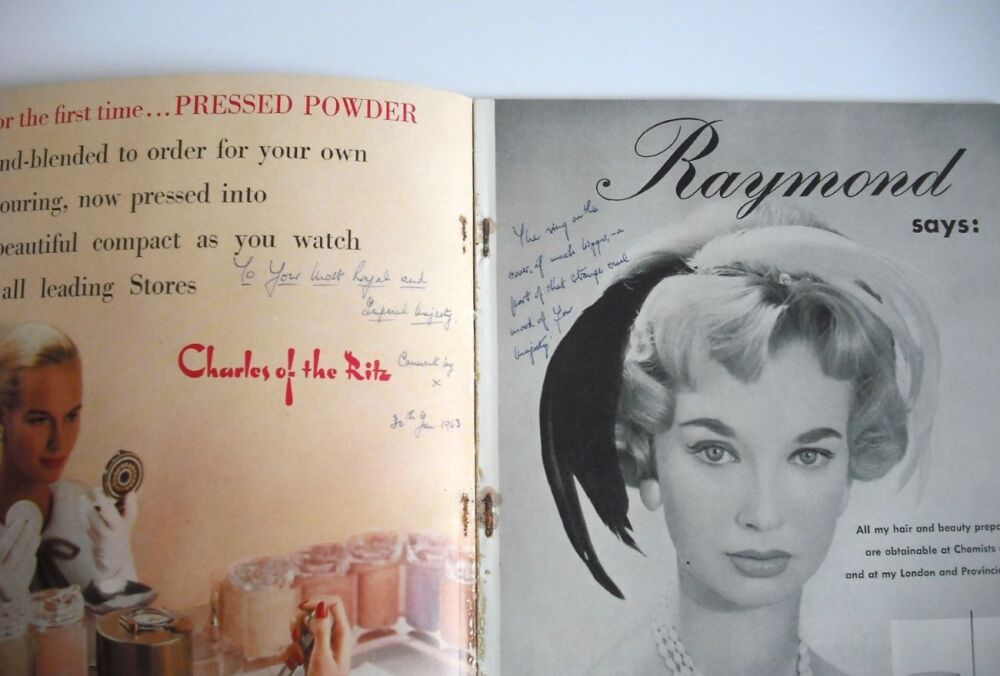 or the first time...PRESSED POWDER
nd-blended to order for your own
ouring, now pressed into
beautiful compact as you watch
all leading Stores
To Your Most Royal and
Imperial Majesty.
Charles of the Ritz
Comments by
x
30th Jan 1963
Raymond
says:
The ring on the
cover, if much bigger, is a
part of that strange cruel
mood of Your
Majesty
All my hair and beauty prepa
are obtainable at Chemists
and at my London and Provincia